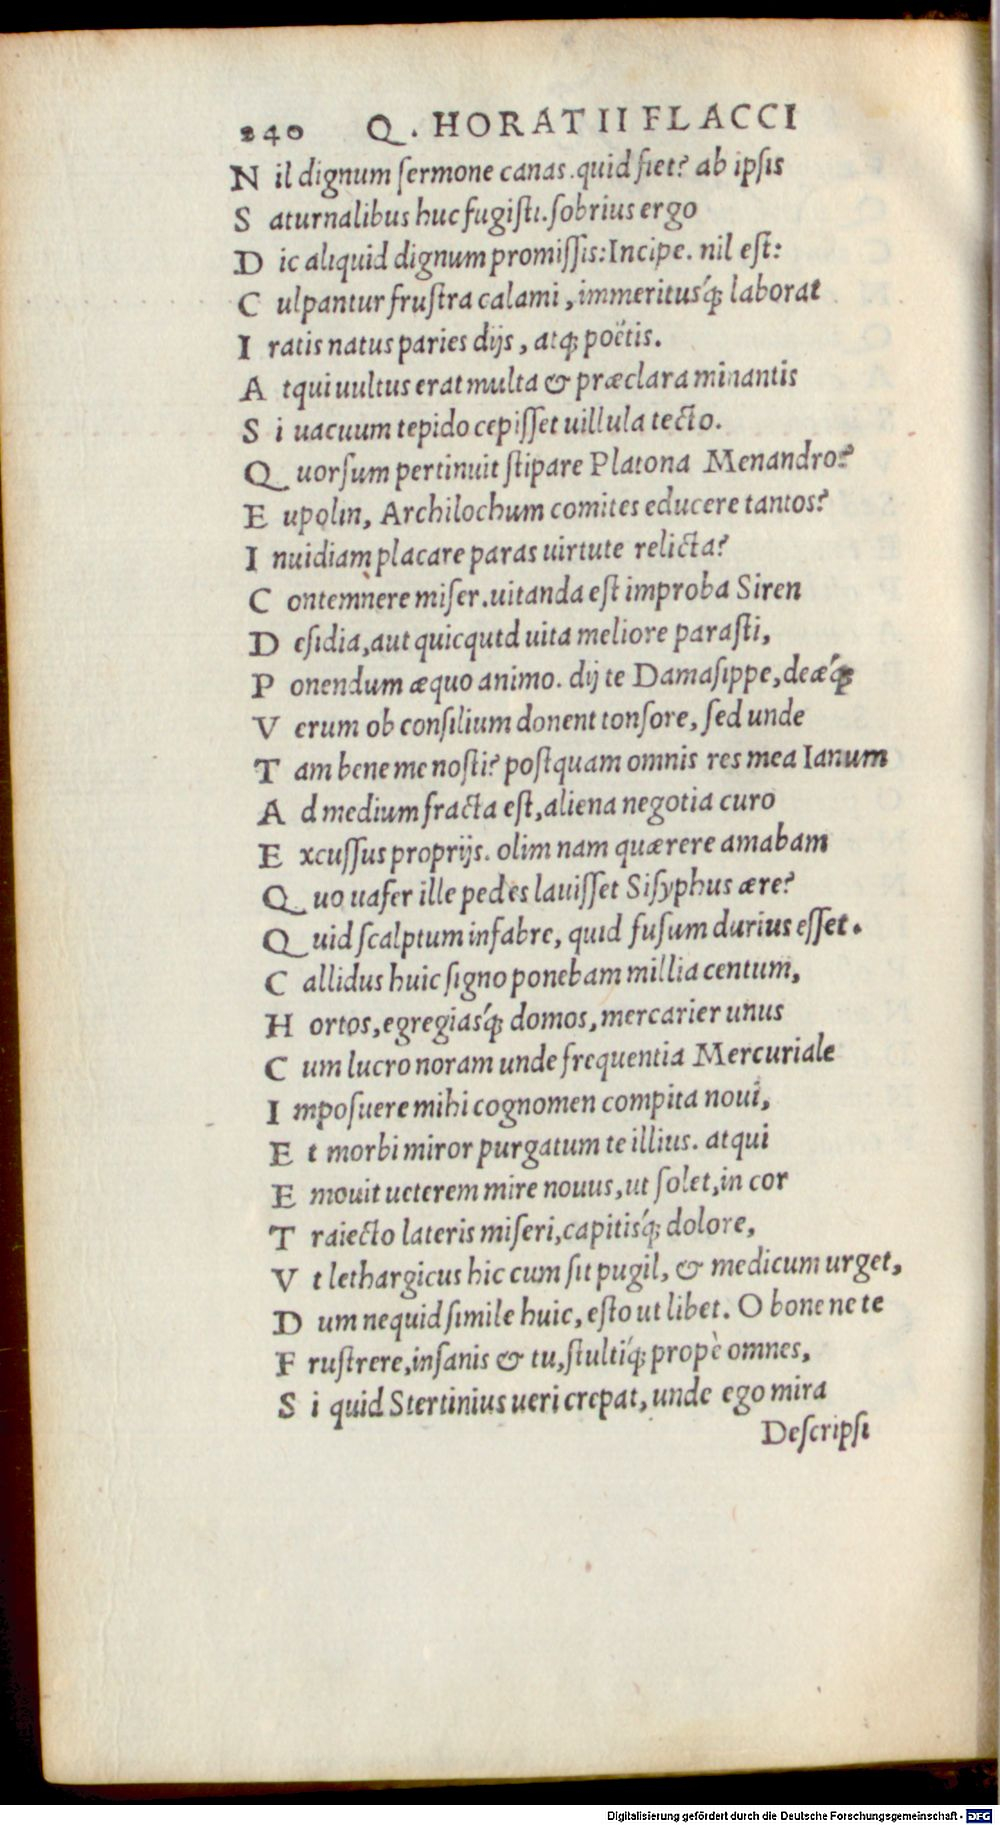 240 Q. HORATII FLACCI
N il dignum ſermone canas. quid fiet? ab ipſis
S aturnalibus huc fugiſti. ſobrius ergo
D ic aliquid dignum promiſſis: Incipe. nil eſt:
C ulpantur fruſtra calami, immeritusq́ꝫ laborat
I ratis natus paries dijs, atqꝫ poëtis.
A tqui uultus erat multa & præclara minantis
S i uacuum tepido cepiſſet uillula tecto.
Q uorſum pertinuit ſtipare Platona Menandro?
E upolin, Archilochum comites educere tantos?
I nuidiam placare paras uirtute relicta?
C ontemnere miſer. uitanda eſt improba Siren
D eſidia, aut quicqutd uita meliore paraſti,
P onendum æquo animo. dij te Damaſippe, deæq́ꝫ
V erum ob conſilium donent tonſore, ſed unde
T am bene me noſti? poſtquam omnis res mea Ianum
A d medium fracta eſt, aliena negotia curo
E xcuſſus proprijs. olim nam quærere amabam
Q uo uafer ille pedes lauiſſet Siſyphus ære?
Q uid ſcalptum infabre, quid fuſum durius eſſet.
C allidus huic ſigno ponebam millia centum,
H ortos, egregiasq́ꝫ domos, mercarier unus
C um lucro noram unde frequentia Mercuriale
I mpoſuere mihi cognomen compita noui,
E t morbi miror purgatum te illius. atqui
E mouit ueterem mire nouus, ut ſolet, in cor
T raiecto lateris miſeri, capitisq́ꝫ dolore,
V t lethargicus hic cum ſit pugil, & medicum urget,
D um nequid ſimile huic, eſto ut libet. O bone ne te
F ruſtrere, inſanis & tu, ſtultiq́ꝫ propè omnes,
S i quid Stertinius ueri crepat, unde ego mira
Deſcripſi
Digitalisierung gefördert durch die Deutsche Forschungsgemeinschaft - DFG